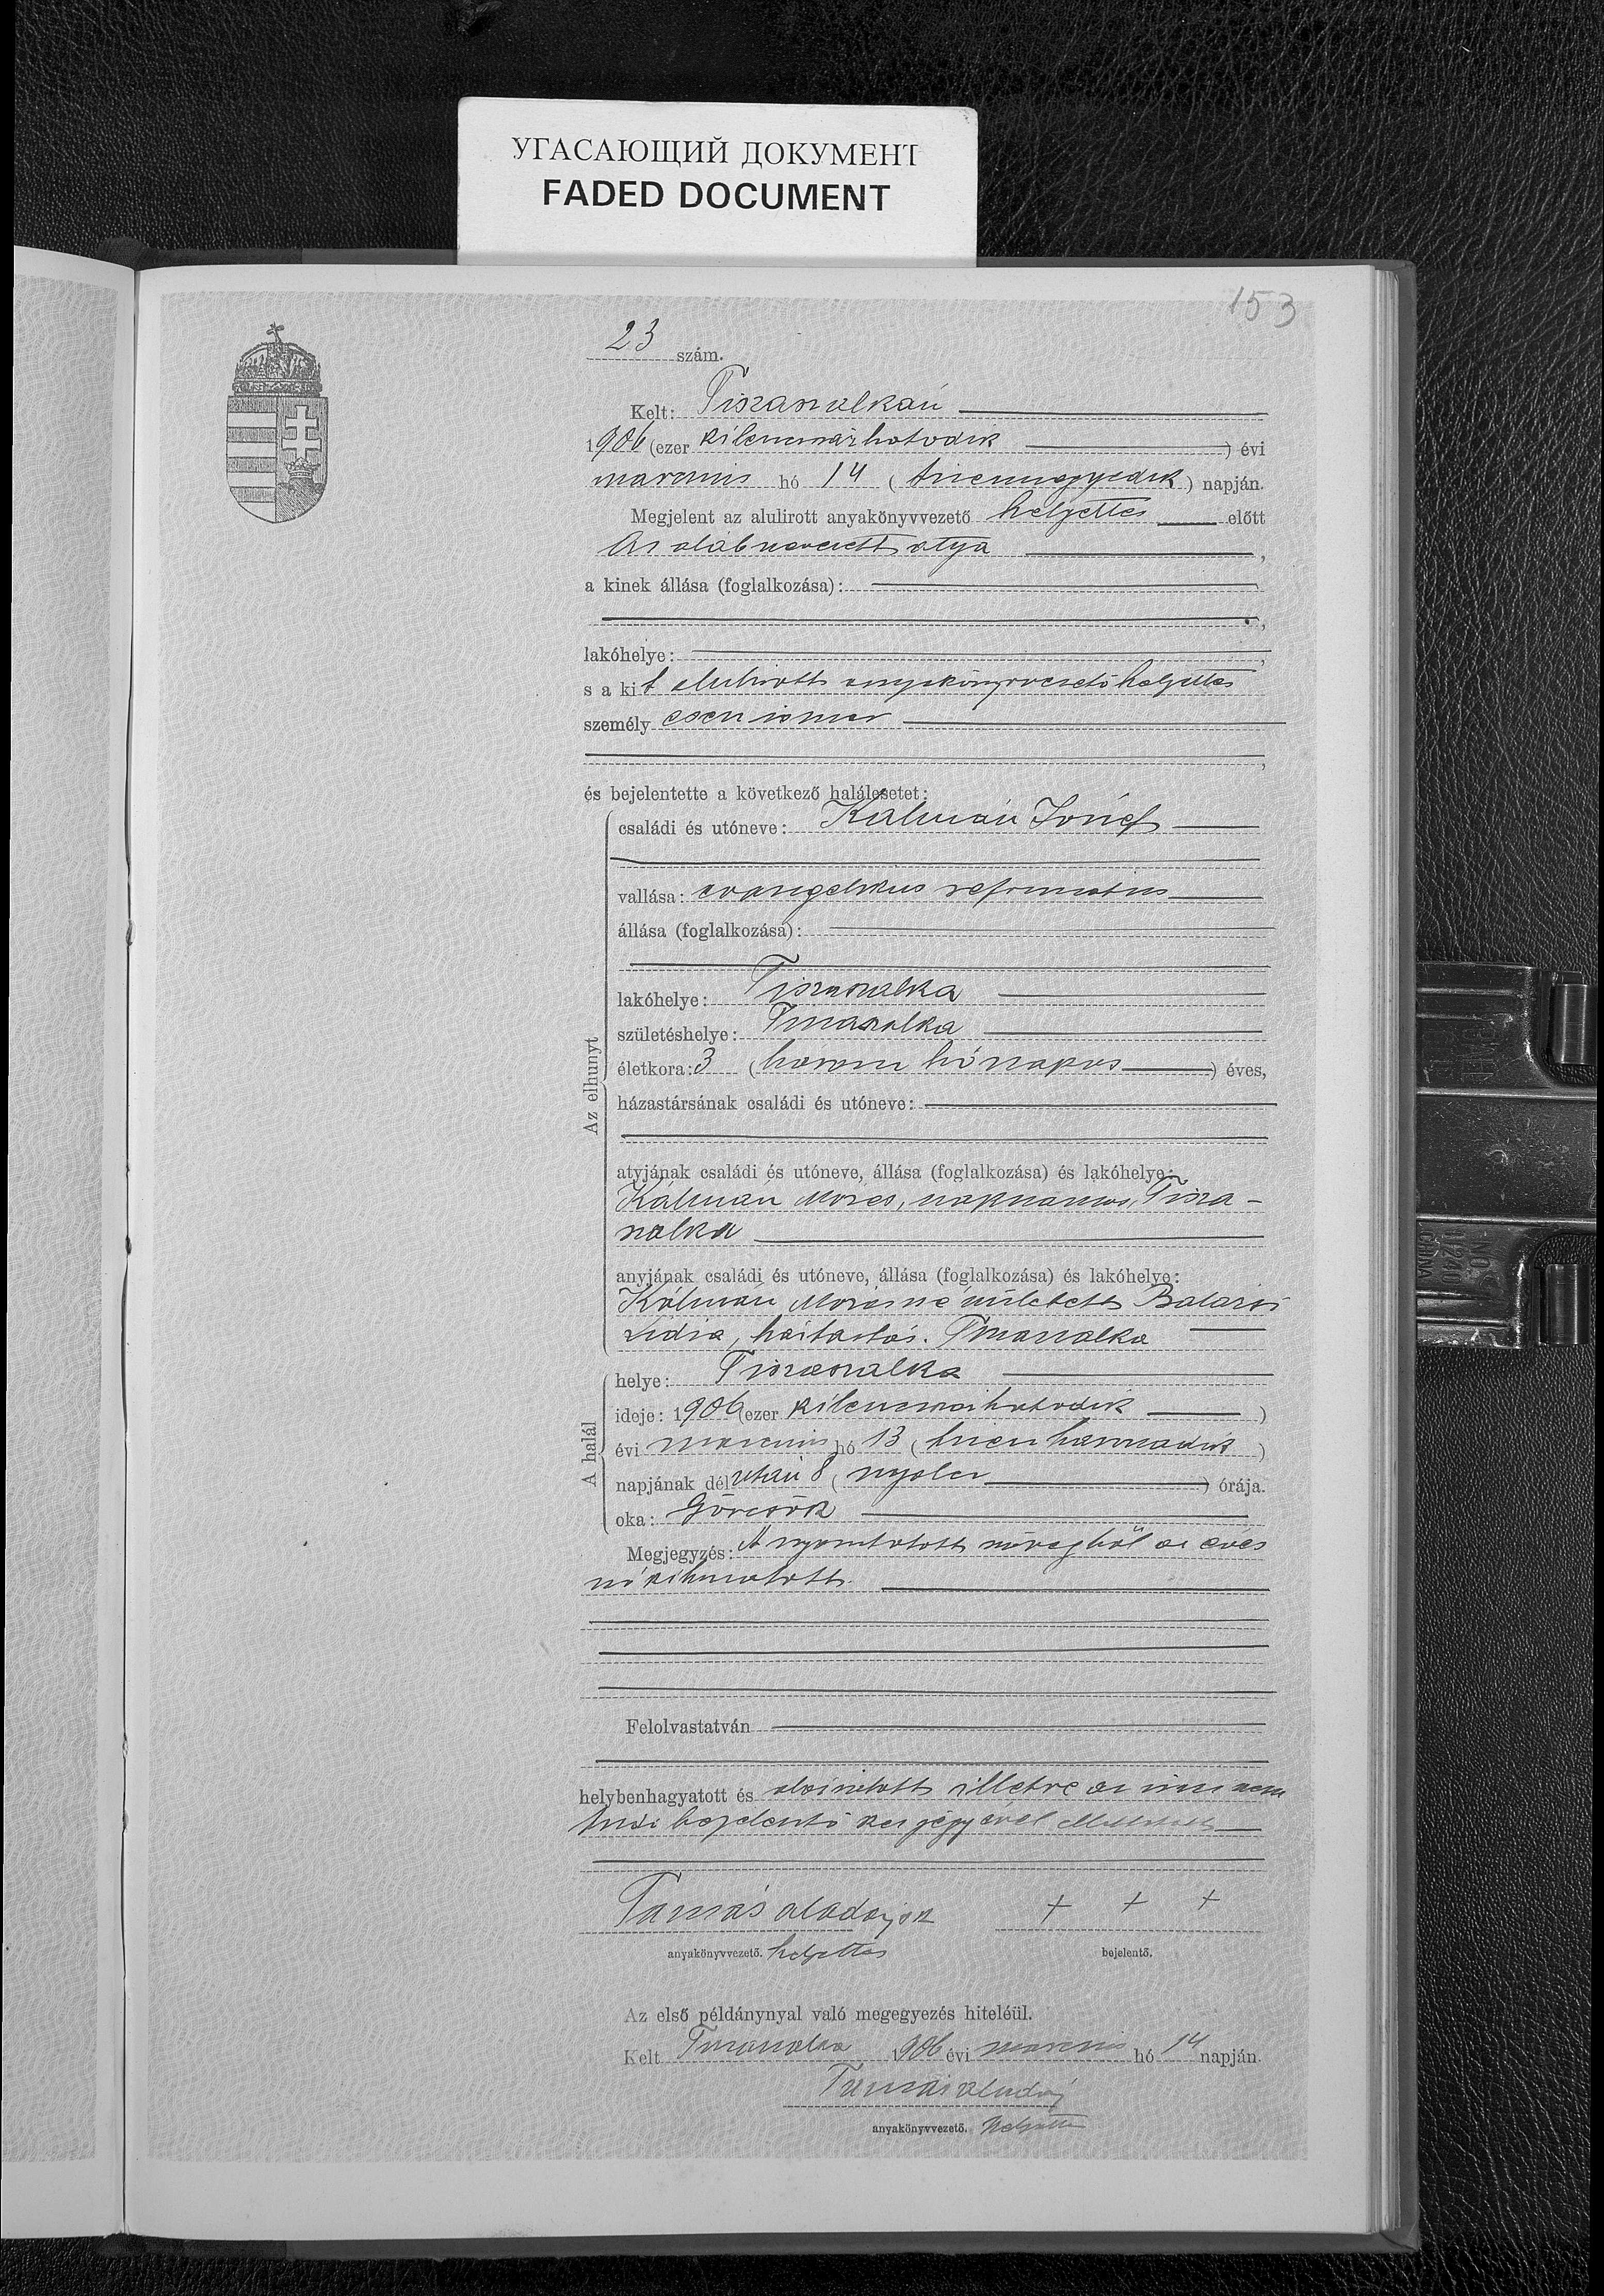 УГАСАЮЩИЙ ДОКУМЕНТ
FADED DOCUMENT
153
23 szám.
Kelt: Tiszaszalkán
1906 (ezer kilenczszázhatodik ) évi
marczius hó 14 ( tizennegyedik ) napján.
Megjelent az alulirott anyakönyvvezető helyettes előtt
Az alább nevezett atya ,
a kinek állása (foglalkozása):
,
lakóhelye: ,
s a kit alulirott anyakönyvvezető helyettes
személyesen ismer
,
és bejelentette a következő halálesetet:
Az elhunyt
családi és utóneve: Kálmán József
vallása: evangelikus református
állása (foglalkozása):
lakóhelye: Tiszaszalka
születéshelye: Tiszaszalka
életkora: 3 ( három hónapos ) éves,
házastársának családi és utóneve:
atyjának családi és utóneve, állása (foglalkozása) és lakóhelye:
Kálmán Mózes, napszámos, Tisza-
szalka
anyjának családi és utóneve, állása (foglalkozása) és lakóhelye:
Kálmán Mózesné született Balázsi
Lidia, háztartás. Tiszaszalka
A halál
helye: Tiszaszalka
ideje: 1906 (ezer kilenczszázhatodik )
évi marczius hó 13 ( tizenharmadik )
napjának délután 8 ( nyolcz ) órája.
oka: Görcsök
Megjegyzés: A nyomtatott szövegből az éves
szó kihuzatott.
Felolvastatván
helybenhagyatott és aláiratott illetve az irni nem
tudó bejelentő kézjegyével elláttatott
Tamás Aladár sk + + +
anyakönyvvezető. helyettes bejelentő.
Az első példánynyal való megegyezés hiteléül.
Kelt Tiszaszalka 1906 évi marczius hó 14 napján.
Tamás Aladár
anyakönyvvezető. helyettes